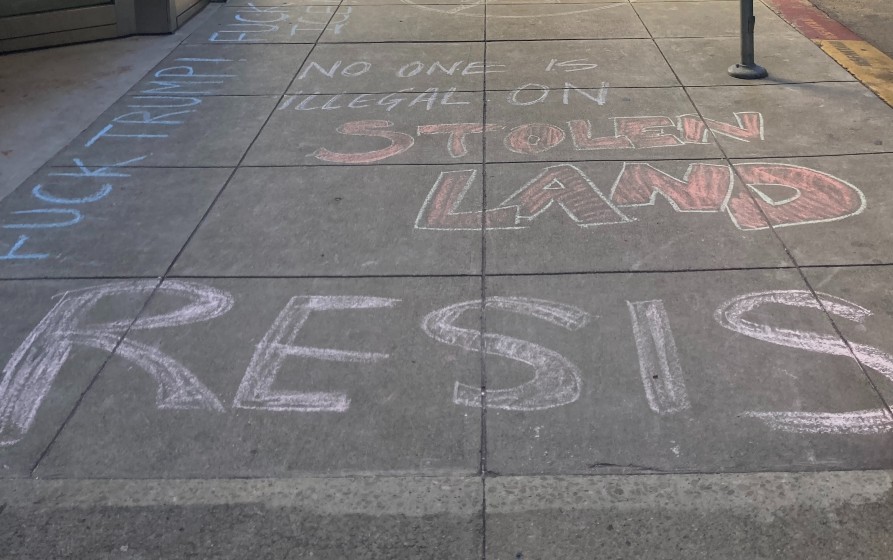 FUCK TRUMP! FUCK
ICE
NO ONE IS
ILLEGAL ON
STOLEN
LAND
RESIS